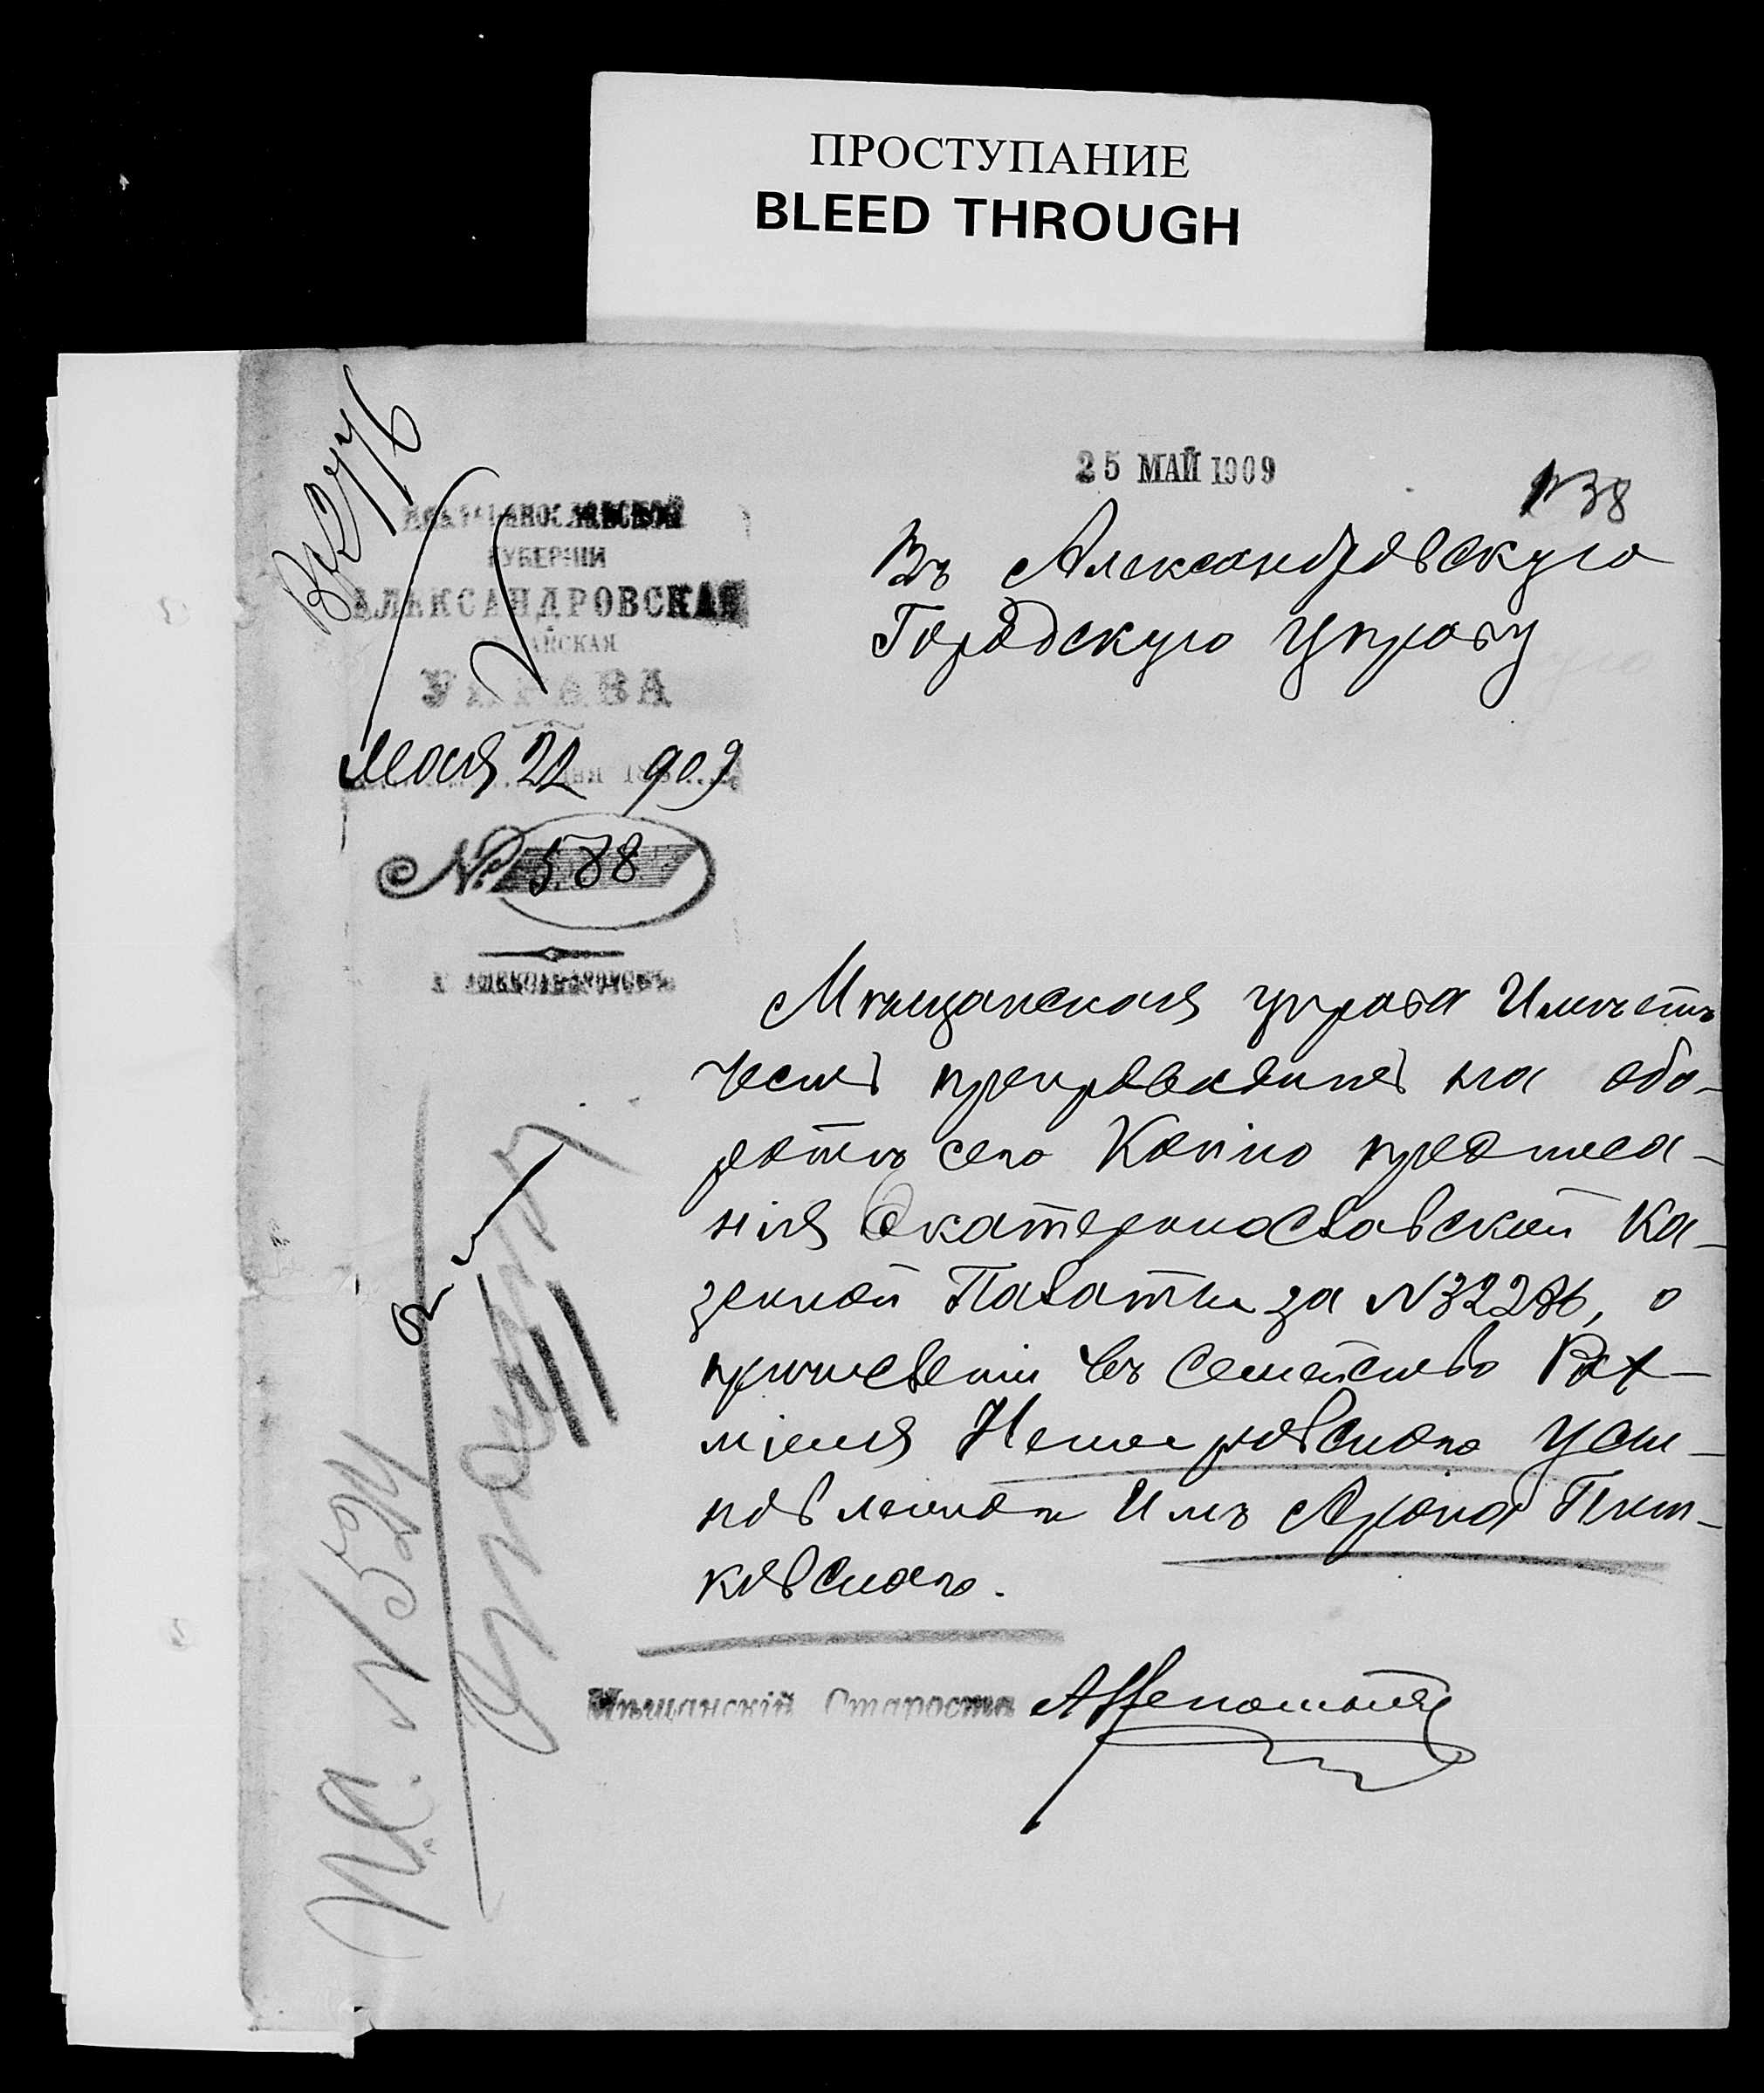 ПРОСТУПАНИЕ
BLEED THROUGH
Вх 2776
25 МАЙ 1909
№38
ЕКАТЕРИНОСЛАВСКОЙ
ГУБЕРНІИ
АЛЕКСАНДРОВСКАЯ
УПРАВА
Мая 22 909
№ 588
Г. АЛЕКСАНДРОВСКЪ
Въ Александровскую
Городскую управу
Мѣщанская управа Имѣетъ
честь препроводить на обо-
ротѣ сего Копію предписа-
нія Екатеринославской Ка-
зенной Палаты за №32286, о
причисленіи въ Семейство Рах-
міеля Немировскаго усы-
новленнаго Имъ Арона Пят-
ковскаго.
Мѣщанскій Староста